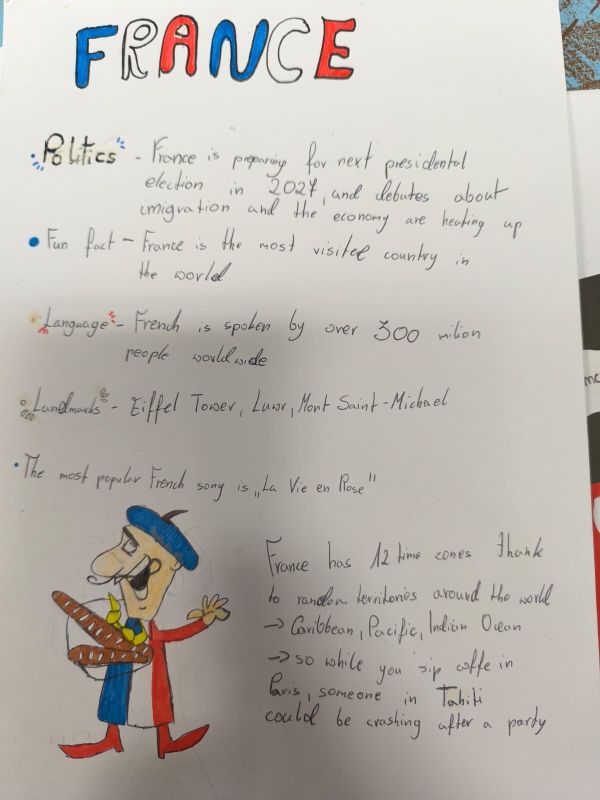 FRANCE
• Politics - France is preparing for next presidental
election in 2027, and debates about
imigration and the economy are heating up
• Fun fact - France is the most visited country in
the world
Language - French is spoken by over 300 milion
people worldwide
Landmarks - Eiffel Tower, Luwr, Mont Saint-Michael
• The most popular French song is „La Vie en Rose"
France has 12 time zones thank
to random territories around the world
→ Caribbean, Pacific, Indian Ocean
→ so while you sip coffe in
Paris, someone in Tahiti
could be crashing after a party
mc